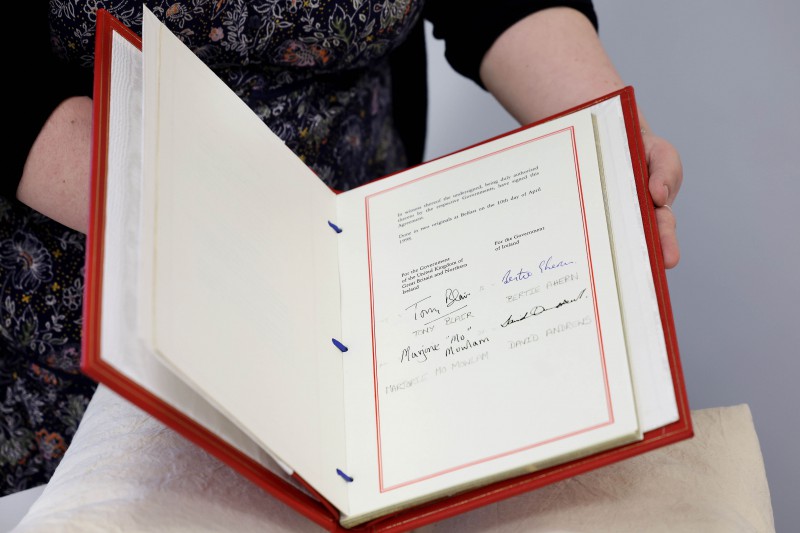 In witness whereof the undersigned, being duly authorised
thereto by the respective Governments, have signed this
Agreement.
Done in two originals at Belfast on the 10th day of April
1998.
For the Government
of the United Kingdom of
Great Britain and Northern
Ireland
For the Government
of Ireland
Tony Blair
Bertie Ahern
TONY BLAIR
BERTIE AHERN
Marjorie "Mo"
Mowlam
MARJORIE MO MOWLAM
DAVID ANDREWS